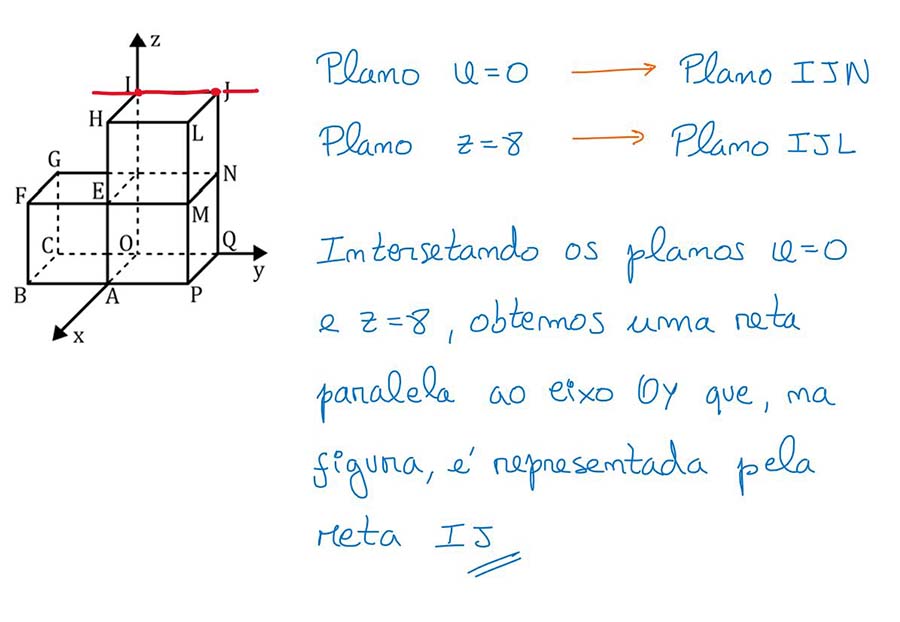 z
I J
H L
G N
F E M
C O Q
y
B A P
x
Plano x=0 → Plano IJN
Plano z=8 → Plano IJL
Intersetando os planos x=0
e z=8, obtemos uma reta
paralela ao eixo Oy que, na
figura, é representada pela
reta IJ